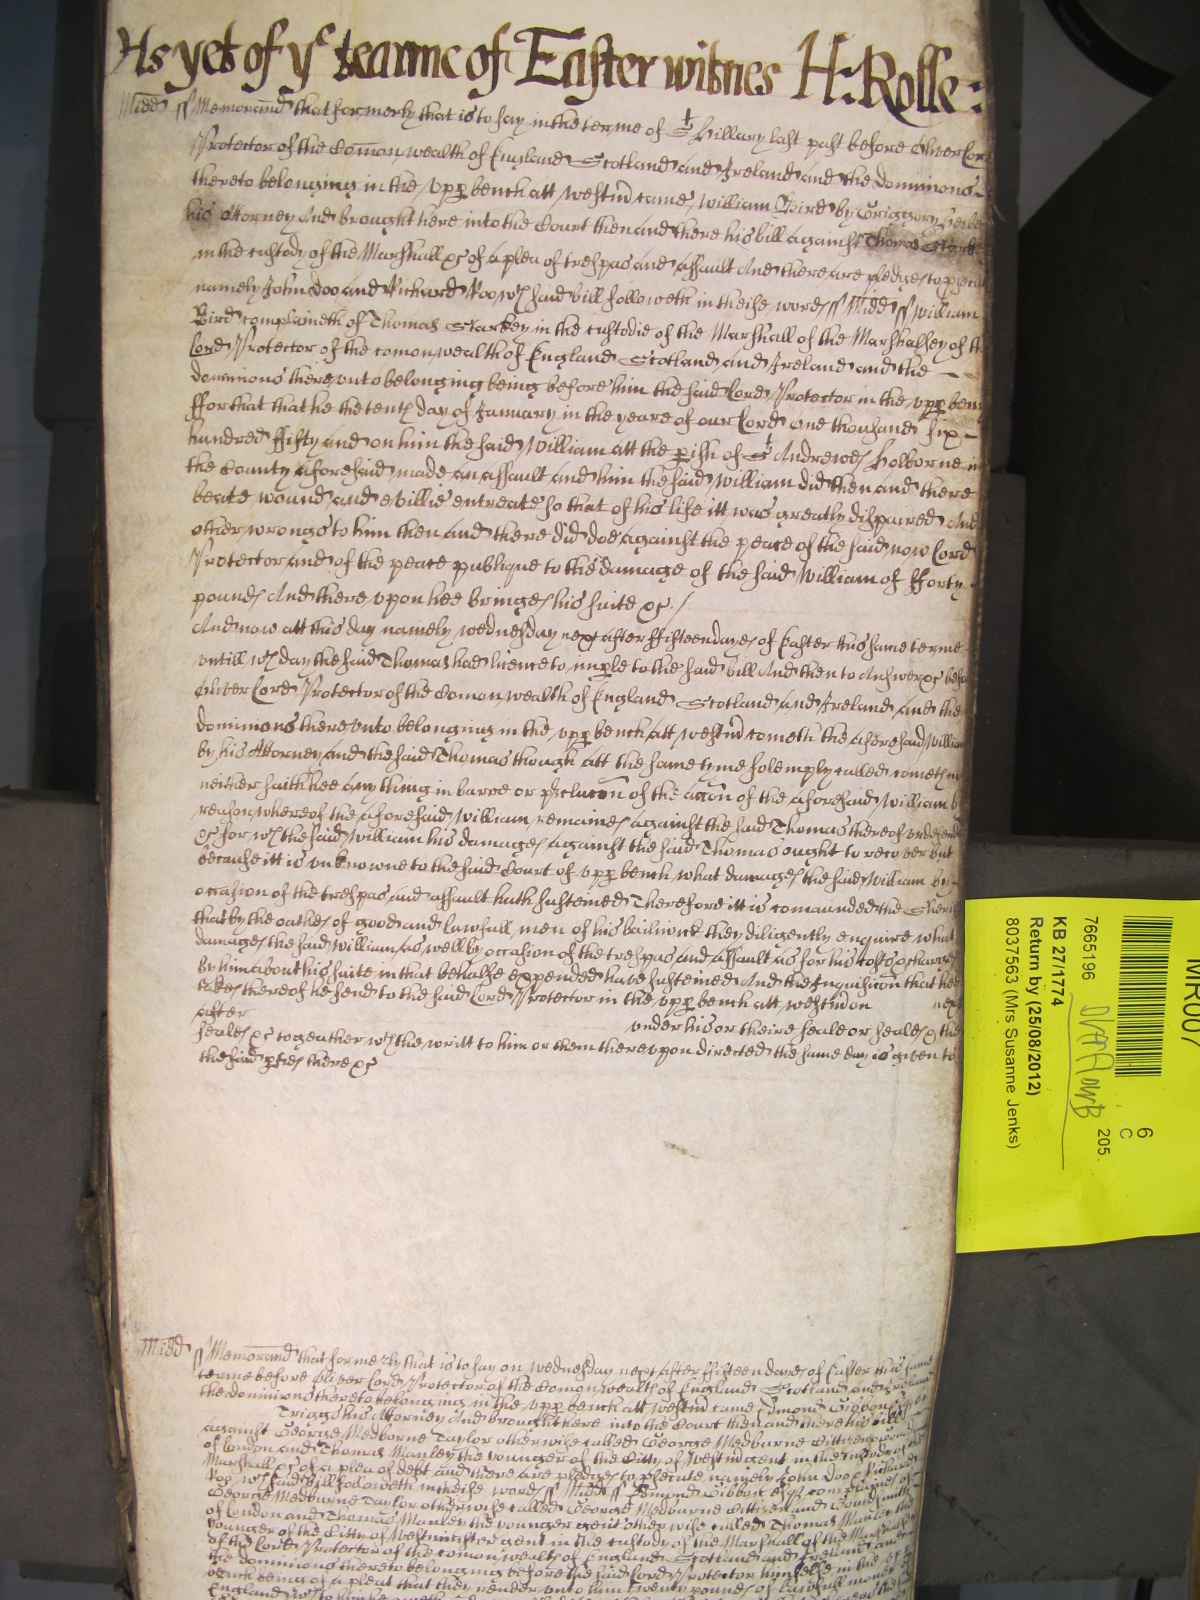 As yet of yᵉ tearme of Easter witnes H: Rolle:
Midd ss Memorand that formerly that is to say in the terme of St Hillary last past before Oliver Lord
Protector of the Comon wealth of England Scotland and Ireland and the dominions
thereto belonging in the upp bench att westm came William Bird by Griggory
his Attorney And brought here into the Court then and there his bill against Thomas Starkey
in the custody of the Marshall &c of a plea of trespas and assault And there are pledges to
namely John Doo and Richard Roo wch said bill followeth in theise words ss Midd ss William
Bird complaineth of Thomas Starkey in the custodie of the Marshall of the Marshalsey of the
Lord Protector of the comon wealth of England Scotland and Ireland and the
dominions there unto belonging being before him the said Lord Protector in the upp bench
ffor that that he the tenth day of January in the yeare of our Lord one thousand six
hundred ffifty and on him the said William att the pish of St Andrewes Holborne in
the County aforesaid made an assault and him the said William did then and there
beate wound and evillie entreate so that of his life itt was greatly dispaired And
other wrongs to him then and there did doe against the peace of the said now Lord
Protector and of the peace publique to the damage of the said William of fforty
pounds And there upon hee bringes his suite &c /
And now att this day namely wednesday next after ffifteen dayes of Easter this same terme
untill wch day the said Thomas had licence to imple to the said bill And then to Answer &c before
Oliver Lord Protector of the Comon wealth of England Scotland and Ireland and the
dominions there unto belonging in the upp bench att westm cometh the aforesaid William
by his Attorney and the said Thomas though att the same tyme solemply called cometh not
neither saith hee any thing in barre or pclucon of the accon of the aforesaid William by
reason whereof the aforesaid William remaines against the said Thomas thereof undefended
&c for wch the said William his damages against the said Thomas ought to recover but
because itt is unknowne to the said Court of upp bench what damages the said William by
occasion of the trespas and assault hath susteined Therefore itt is comaunded the Sheriffs
that by the oathes of good and lawfull men of his bailiwick they diligently enquire what
damages the said William as well by occasion of the trespas and assault as for his costs & charges
by him about his suite in that behalfe expended hath susteined And the Inquisicon that hee
takes thereof he send to the said Lord Protector in the upp bench att westm on next
after under his or theire seale or seales & the
seales &c togeather wth the writt to him or them thereupon directed the same day is given to
the said pties there &c
Midd ss Memorand that formerly that is to say on wednesday next after ffifteen dayes of Easter this same
terme before Oliver Lord Protector of the Comon wealth of England Scotland and Ireland
the dominions thereto belonging in the upp bench att westm came Edmond Gibbon
Triggs his Attorney And brought here into the Court then and there his bill
against George Medborne Taylor otherwise called George Medburne Cittizen
of London and Thomas Manley the younger of the Citty of Westm gent in the custody of the
Marshall &c of a plea of debt and there are pledges to psecute namely John Doo & Richard
Roo wch said bill followeth in theise words ss Midd ss Edmond Gibbon esqr complaines of
George Medburne Taylor otherwise called George Medburne Cittizen and
of London and Thomas Manley the younger gent otherwise called Thomas Manley the
younger of the Citty of Westminster gent in the custody of the Marshall of the Marshalsey
of the Lord Protector of the comon wealth of England Scotland and Ireland and
the dominions thereto belonging before the said Lord Protector himselfe in the upp
bench being of a plea that they render unto him twenty pounds of lawfull money of
England
MR007
7665196
KB 27/1774
Return by (25/08/2012)
8037563 (Mrs Susanne Jenks)
6
C
205.